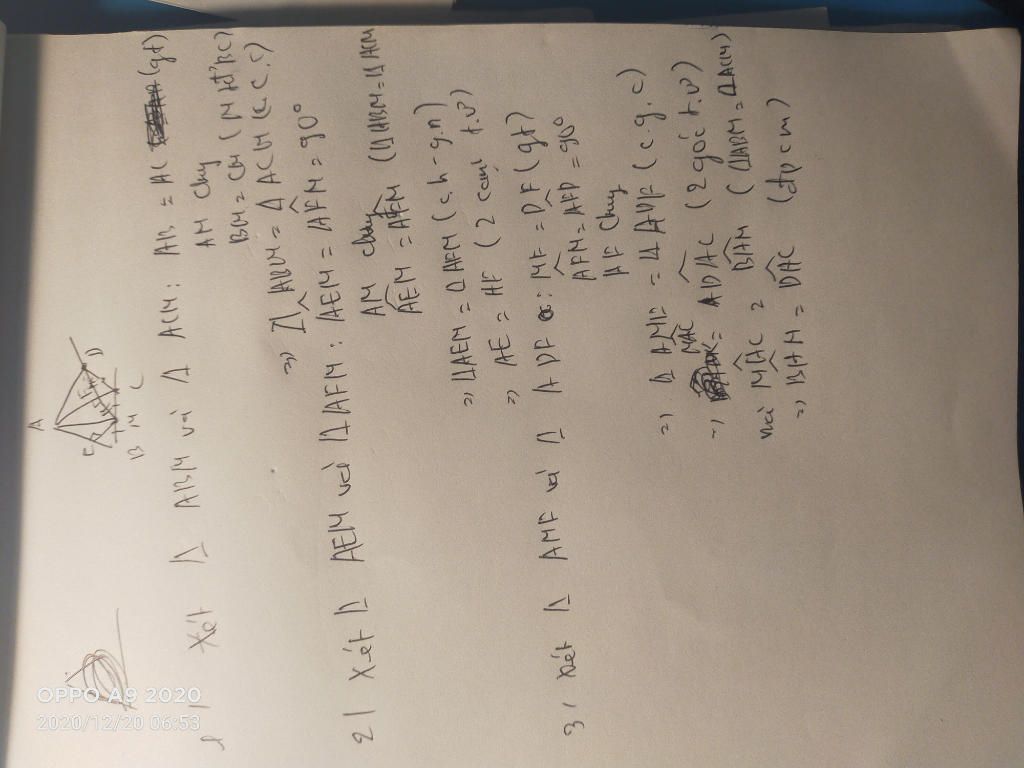 A
E
F
D
B M C
1/ Xét Δ ABM và Δ ACM: AB = AC (gt)
AM chung
BM = CM (M tđ BC)
=> Δ ABM = Δ ACM (c.c.c)
2/ Xét Δ AEM và Δ AFM: AEM = AFM = 90°
AM chung
AEM = AFM (ΔABM = ΔACM
=> ΔAEM = ΔAFM (c.h-g.n)
=> AE = AF (2 cạnh t.ứ)
3/ Xét Δ AMF và Δ ADF có: MF = DF (gt)
AFM = AFD = 90°
AF chung
=> Δ AMF = Δ ADF (c.g.c)
=> MAC = DAC (2 góc t.ứ)
mà MAC = BAM (ΔABM = ΔACM)
=> BAM = DAC (đpcm)
OPPO A9 2020
2020/12/20 06:53